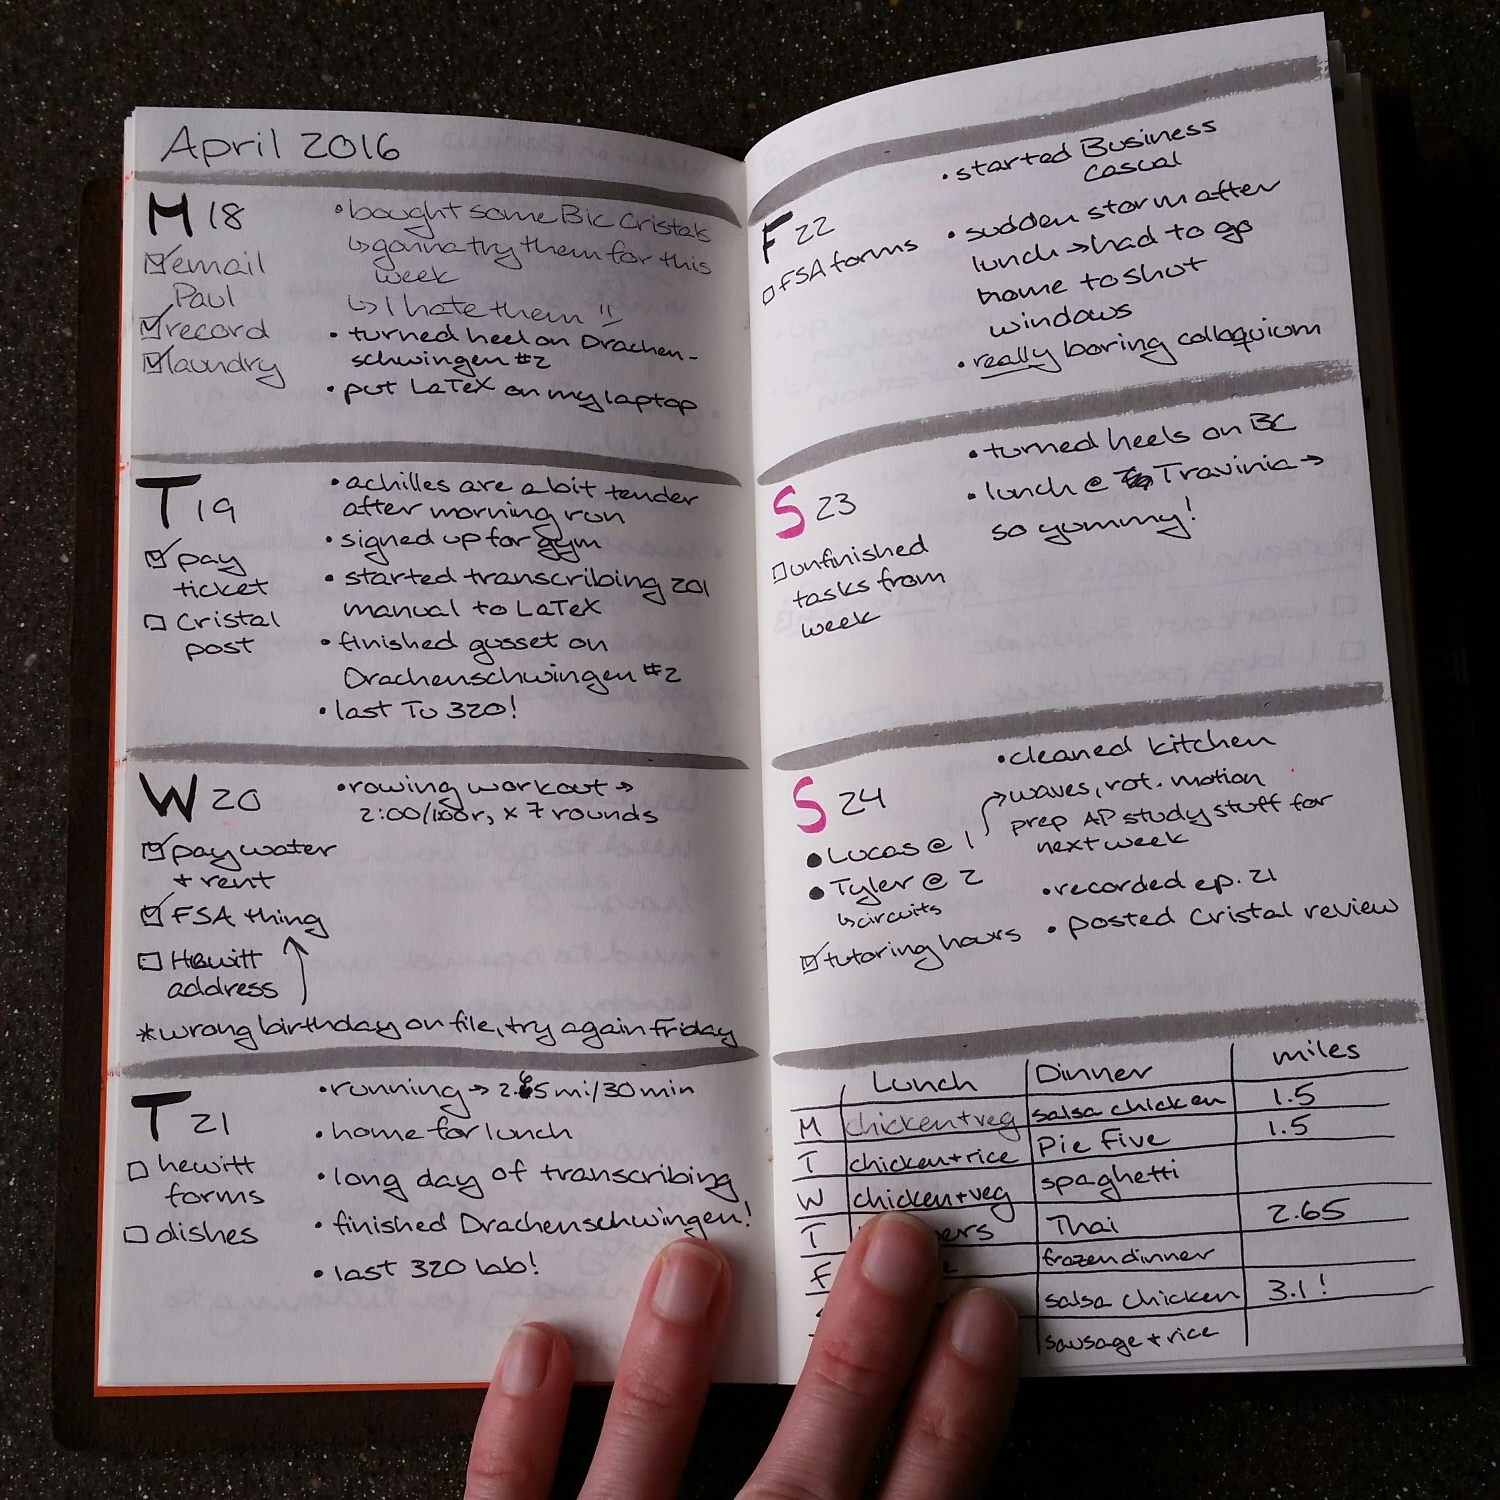 April 2016
M 18
email
Paul
record
laundry
• bought some Bic Cristals
↳ gonna try them for this
week
↳ I hate them
• turned heel on Drachen-
schwingen #2
• put LaTeX on my laptop
T 19
pay
ticket
Cristal
post
• achilles are a bit tender
after morning run
• signed up for gym
• started transcribing 201
manual to LaTeX
• finished gusset on
Drachenschwingen #2
• last Tu 320!
W 20
pay water
+ rent
FSA thing
Hewitt
address
• rowing workout →
2:00/100r, x 7 rounds
*wrong birthday on file, try again Friday
T 21
hewitt
forms
dishes
• running → 2.65 mi/30 min
• home for lunch
• long day of transcribing
• finished Drachenschwingen!
• last 320 lab!
F 22
FSA forms
• started Business
Casual
• sudden storm after
lunch → had to go
home to shut
windows
• really boring colloquium
S 23
unfinished
tasks from
week
• turned heels on BC
• lunch @ Travinia →
so yummy!
S 24
• Lucas @ 1
• Tyler @ 2
↳ circuits
tutoring hours
• cleaned kitchen
→ waves, rot. motion
prep AP study stuff for
next week
• recorded ep. 21
• posted Cristal review
Lunch Dinner miles
M chicken+veg salsa chicken 1.5
T chicken+rice Pie Five 1.5
W chicken+veg spaghetti
T Thai 2.65
F frozen dinner
salsa chicken 3.1!
sausage + rice